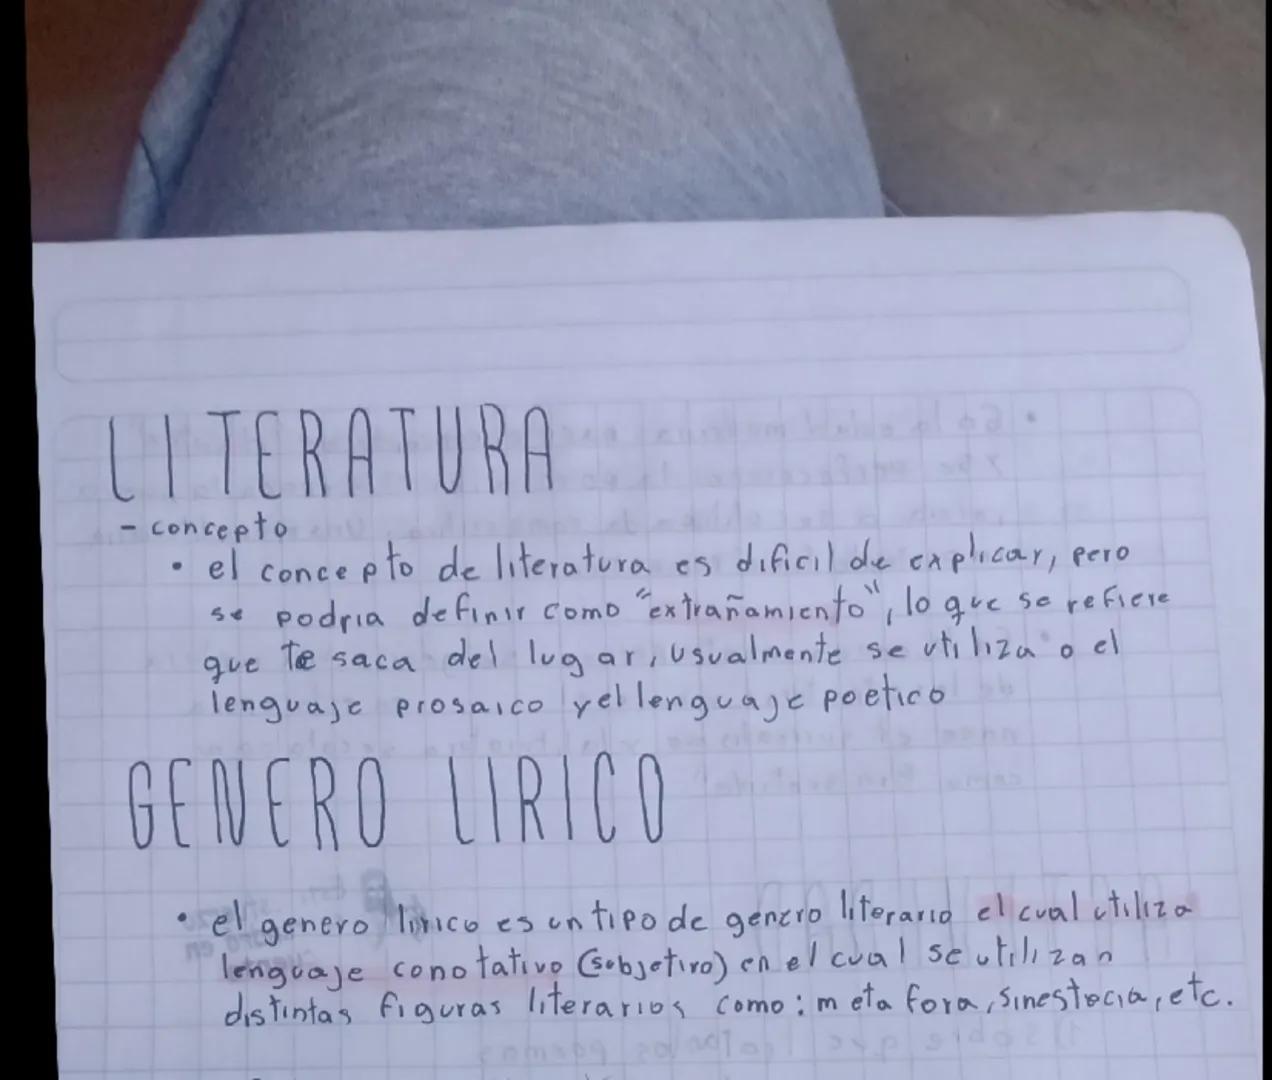 LITERATURA
- concepto
• el concepto de literatura es dificil de explicar, pero
se podria definir como "extrañamiento", lo que se refiere
que te saca del lugar, usualmente se utiliza o el
lenguaje prosaico y el lenguaje poetico
GENERO LIRICO
• el genero lirico es un tipo de genero literario el cual utiliza
lenguaje conotativo (subjetivo) en el cual se utilizan
distintas figuras literarios como: metafora, sinestecia, etc.